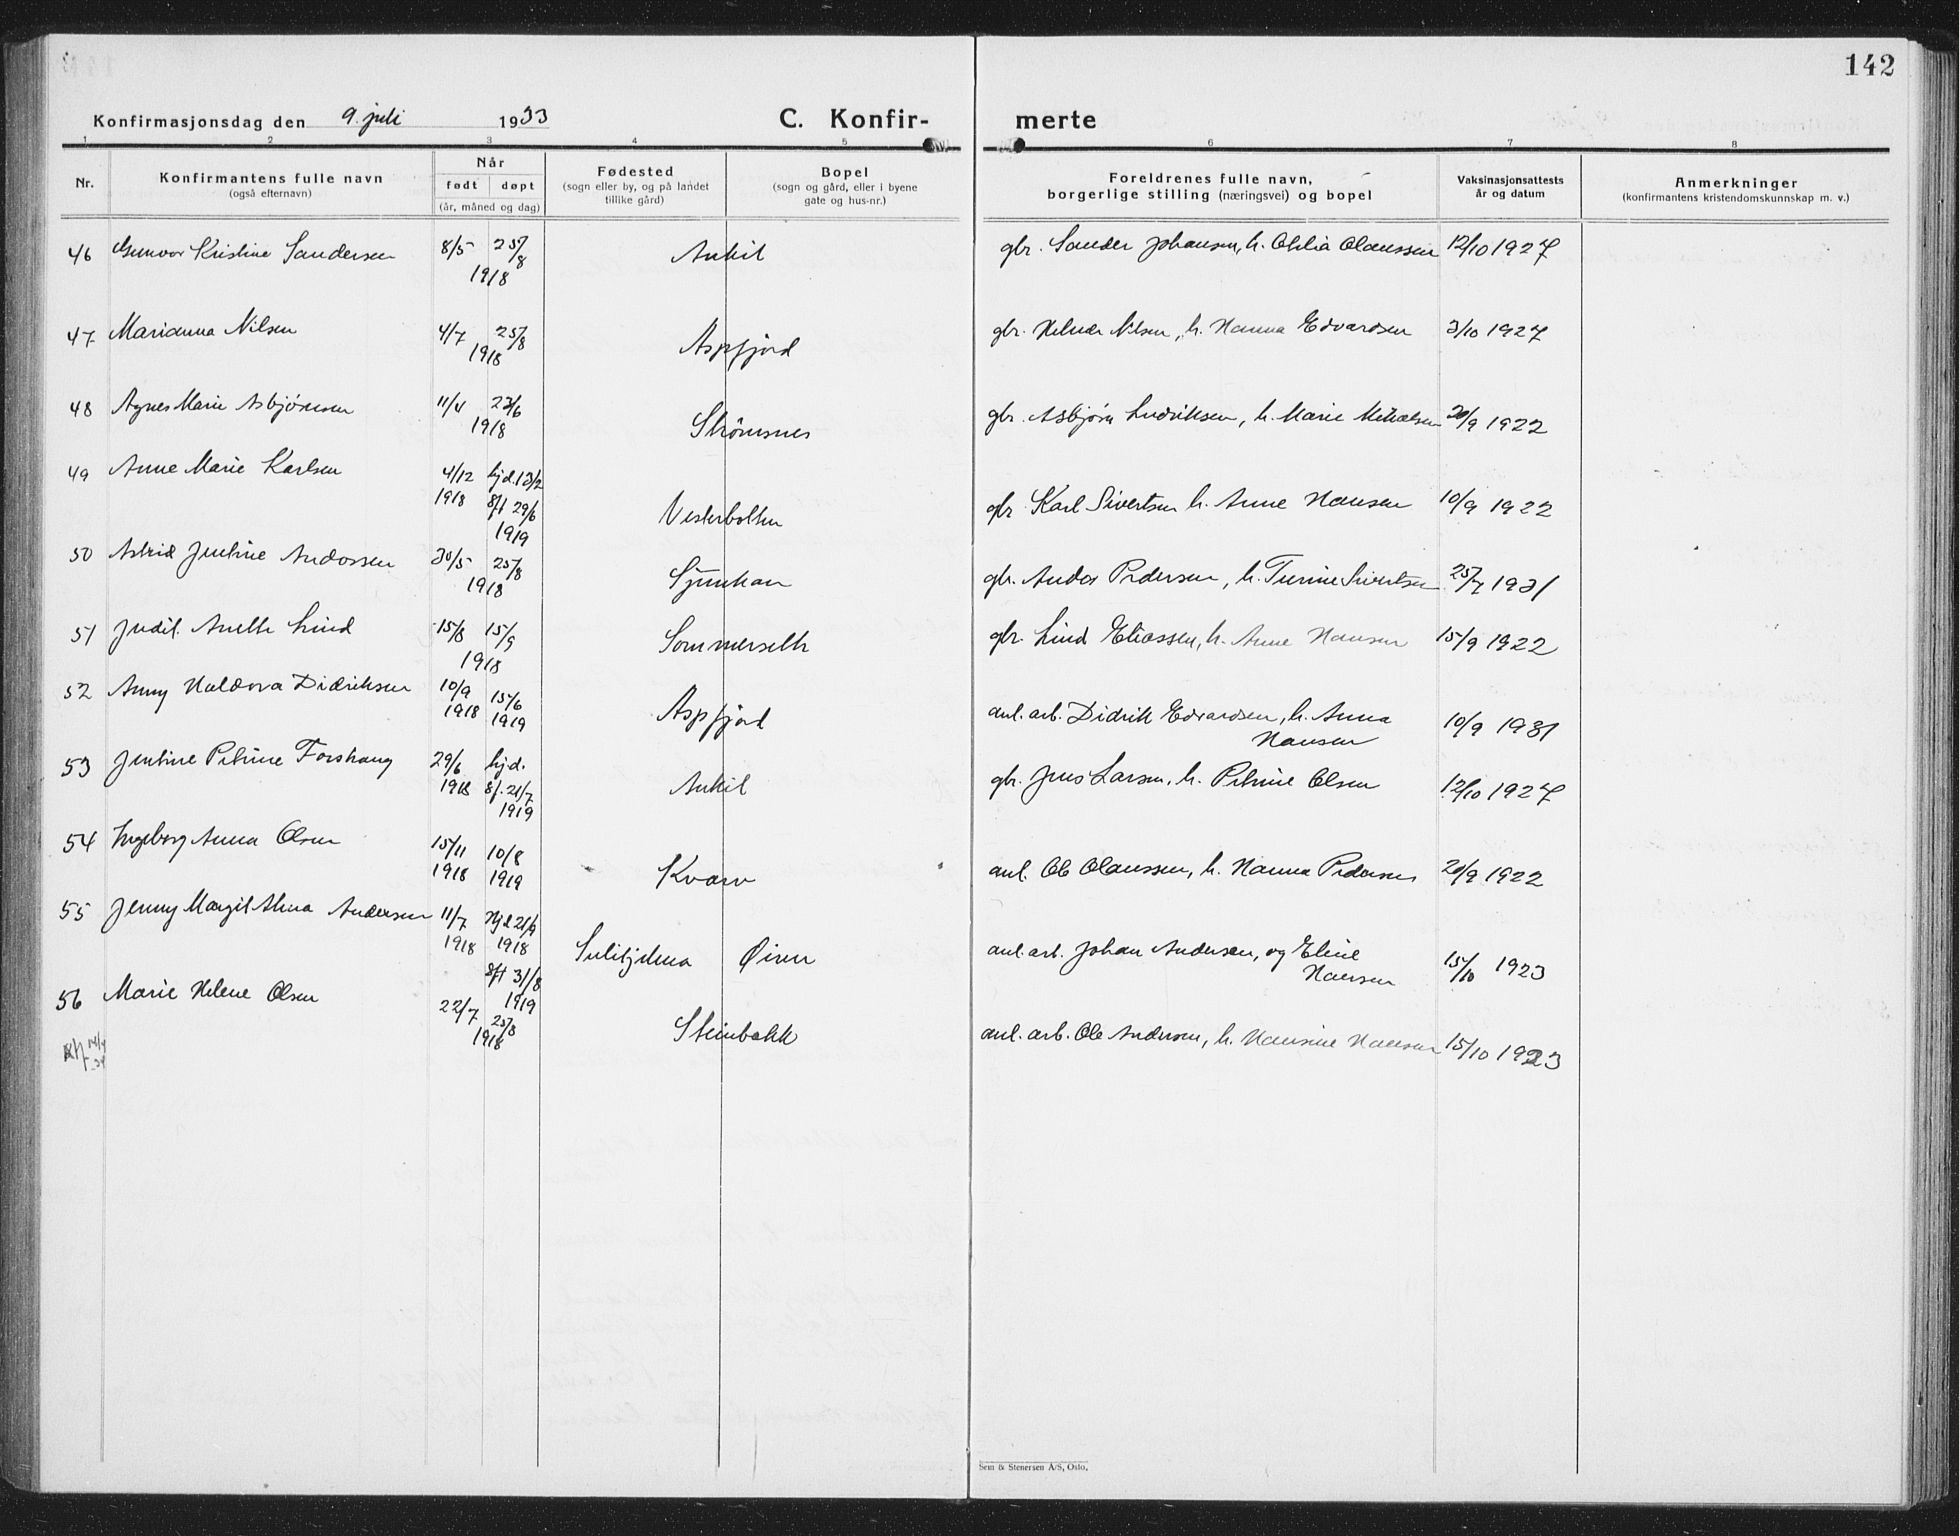 142
Konfirmasjonsdag den 9. juli 1933
C. Konfir- merte
1 2 3 4 5 6 7 8
Nr.
Konfirmantens fulle navn
(også efternavn)
Når
født døpt
(år, måned og dag)
Fødested
(sogn eller by, og på landet
tillike gård)
Bopel
(sogn og gård, eller i byene
gate og hus-nr.)
Foreldrenes fulle navn,
borgerlige stilling (næringsvei) og bopel
Vaksinasjonsattests
år og datum
Anmerkninger
(konfirmantens kristendomskunnskap m. v.)
46 Gunvor Kristine Sandersen 8/5 25/8 1918 Ankil gbr. Sander Johansen, h. Otilia Olaussen 12/10 1927
47 Marianna Nilsen 4/7 25/8 1918 Aspfjord gbr. Hilmar Nilsen, h. Hanna Edvardsen 3/10 1927
48 Agnes Marie Asbjørnsen 11/4 23/6 1918 Strømsnes gbr. Asbjørn Ludriksen, h. Marie Mikalsen 20/9 1922
49 Anne Marie Karlsen 4/12 1918 hjd. 13/2 stf 29/6 1919 Vesterbotten gbr Karl Sivertsen h. Anne Hansen 10/9 1922
50 Astrid Jentine Andorsen 30/5 25/8 1918 Sjunkan gbr. Andor Pedersen, h. Turine Sivertsen 25/7 1931
51 Judit Anette Lind 15/8 15/9 1918 Sommerseth gbr. Lind Eliassen, h. Anne Hansen 15/9 1922
52 Anny Haldora Didriksen 10/9 1918 15/6 1919 Aspfjord anl. arb. Didrik Edvardsen, h. Anna
Hansen 10/9 1931
53 Jentine Petrine Forshaug 29/6 1918 hjd. sf. 21/7 1919 Ankil gbr. Jens Larsen, h. Petrine Olsen 12/10 1927
54 Ingeborg Anna Olsen 15/11 1918 10/8 1919 Kvarv anl. Ole Olaussen, h. Hanna Pedersen 20/9 1922
55 Jenny Margit Alma Andersen 11/7 1918 Hjd 21/9 1918 stf 31/8 1919 Sulitjelma Øiren anl. arb. Johan Andersen, og Eline
Hansen 15/10 1923
56 Marie Helene Olsen 22/7 25/8 1918 Steinbakk anl. arb. Ole Andersen, h. Hansine Hansen 15/10 1923
14/4 -34
Sem & Stenersen A/S, Oslo.